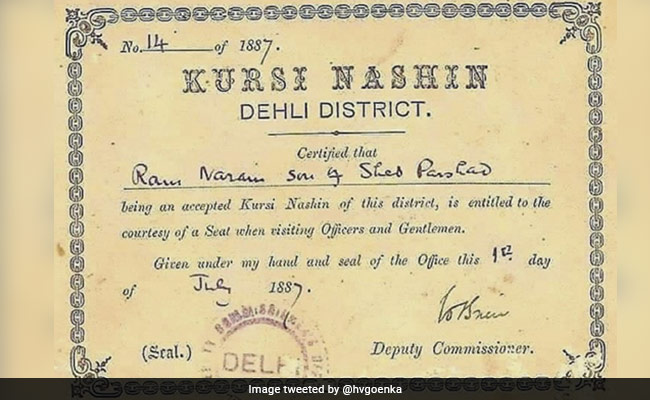 No. 14 of 1887.
KURSI NASHIN
DEHLI DISTRICT.
Certified that
Ram Narain son of Sheo Parshad
being an accepted Kursi Nashin of this district, is entitled to the
courtesy of a Seat when visiting Officers and Gentlemen.
Given under my hand and seal of the Office this 1st day
of July 1887.
(Seal.)
DELH
Deputy Commissioner.
Image tweeted by @hvgoenka